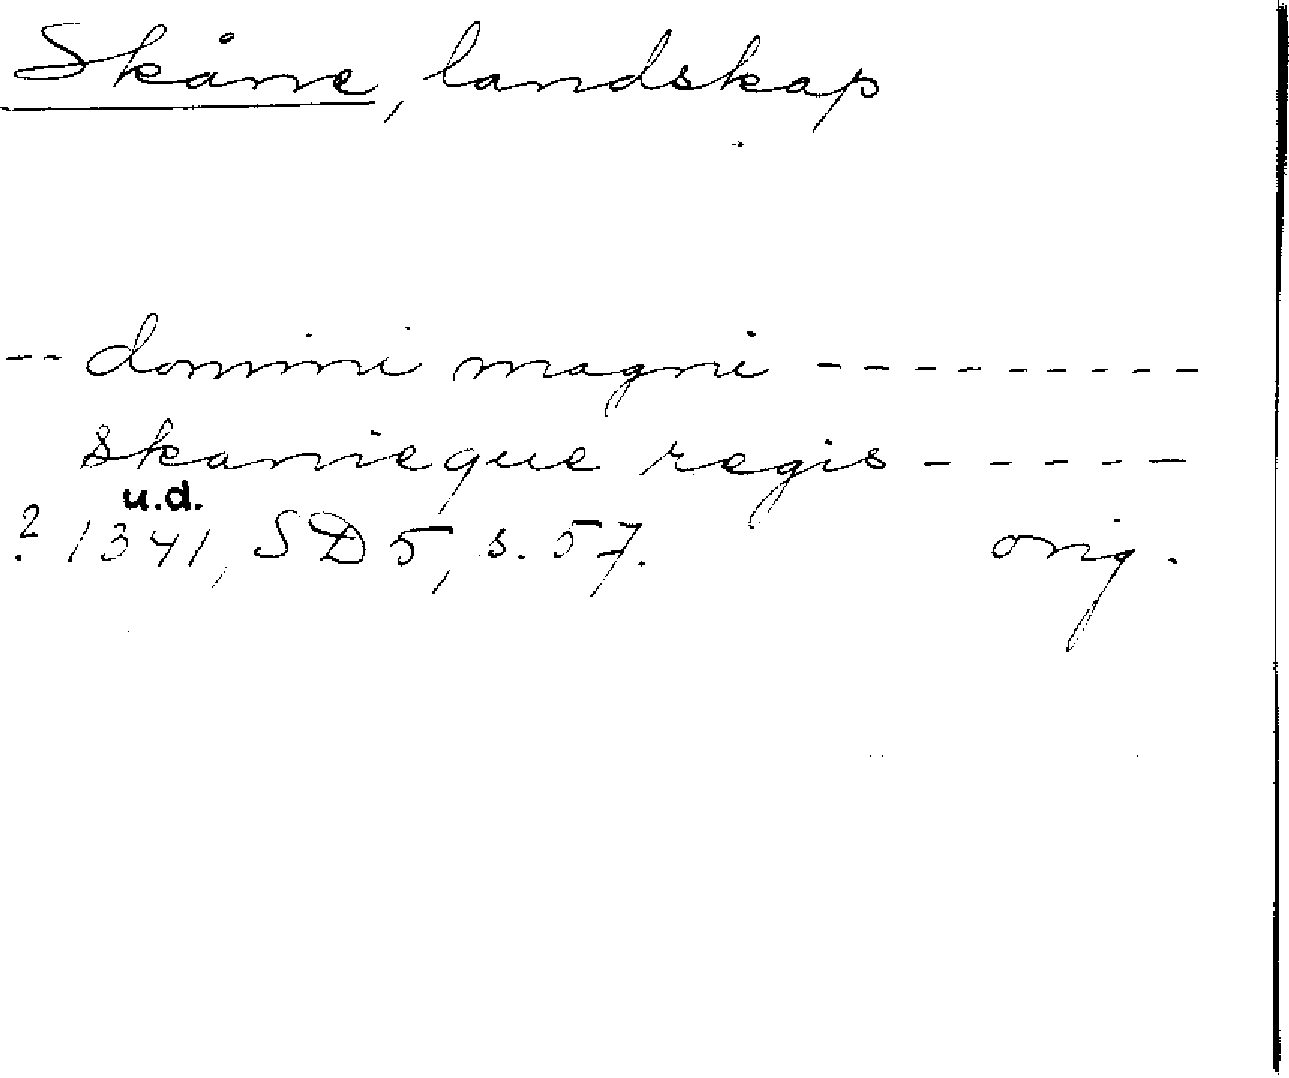 Skåne, landskap
-- domini magni ---------
skanieque regis ------
u.d.
? 1341, SD 5, s. 57. orig.